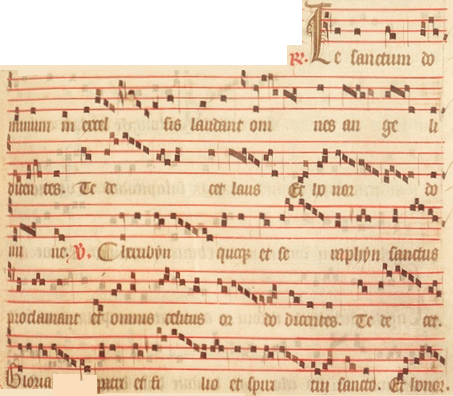 R. Te sanctum do
minum in excel sis laudant om nes an ge li
dicen tes. Te de cet laus Et ho nor do
mi ne. V. Cherubyn quoque et se raphyn sanctus
proclamant et omnis celitus or do dicentes. Te de cet.
Gloria patri et fi lio et spiri tui sancto. Et honor.